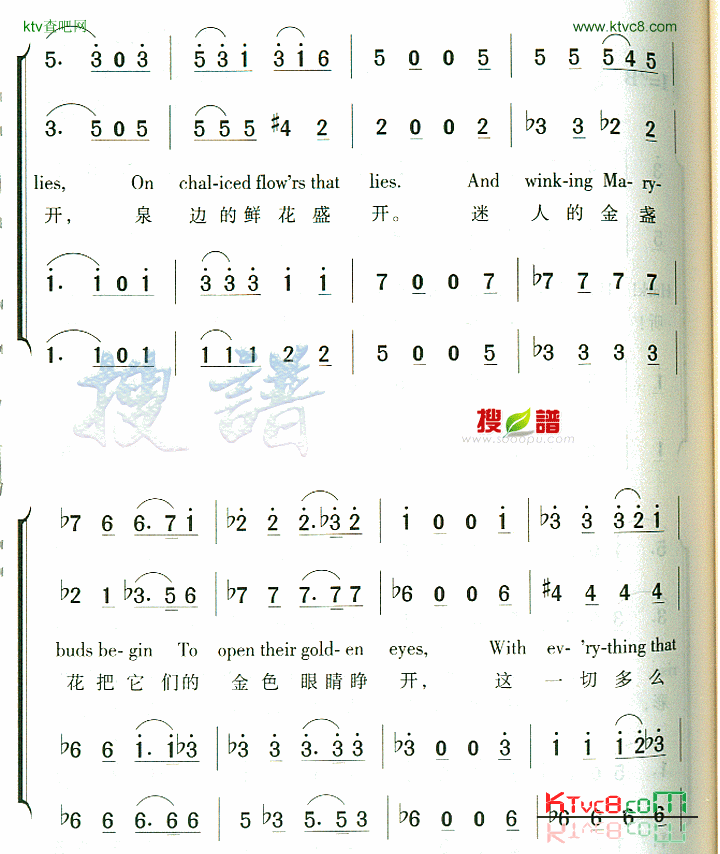 ktv查吧网 www.ktvc8.com
5. 3 0 3 5 3 1 3 1 6 5 0 0 5 5 5 5 4 5
3. 5 0 5 5 5 5 #4 2 2 0 0 2 b3 3 b2 2
lies, On chal-iced flow'rs that lies. And wink-ing Ma-ry-
开， 泉 边的鲜花盛 开。 迷 人的金盏
1. 1 0 1 3 3 3 1 1 7 0 0 7 b7 7 7 7
1. 1 0 1 1 1 1 2 2 5 0 0 5 b3 3 3 3
搜谱
搜谱
www.sooopu.com
b7 6 6. 7 1 b2 2 2. b3 2 1 0 0 1 b3 3 3 2 1
b2 1 b3. 5 6 b7 7 7. 7 7 b6 0 0 6 #4 4 4 4
buds be-gin To open their gold-en eyes, With ev-'ry-thing that
花把它们的 金色眼睛睁 开， 这 一切多么
b6 6 1. 1 b3 b3 3 3. 3 3 b3 0 0 3 1 1 1 2 b3
b6 6 6. 6 6 5 b3 5. 5 3 b6 0 0 6 b6 6 6 6
KTvc8.com